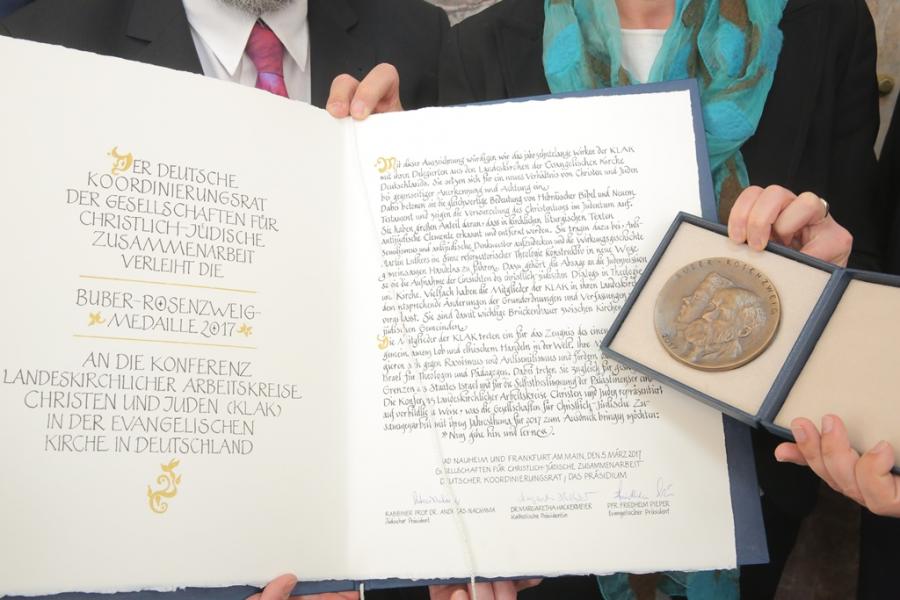 DER DEUTSCHE
KOORDINIERUNGSRAT
DER GESELLSCHAFTEN FÜR
CHRISTLICH-JÜDISCHE
ZUSAMMENARBEIT
VERLEIHT DIE
BUBER-ROSENZWEIG-
MEDAILLE 2017
AN DIE KONFERENZ
LANDESKIRCHLICHER ARBEITSKREISE
CHRISTEN UND JUDEN (KLAK)
IN DER EVANGELISCHEN
KIRCHE IN DEUTSCHLAND
Mit dieser Auszeichnung würdigen wir das jahrzehntelange Wirken der KLAK
mit ihren Delegierten aus den Landeskirchen der Evangelischen Kirche
Deutschlands. Sie setzen sich für ein neues Verhältnis von Christen und Juden
bei gegenseitiger Anerkennung und Achtung ein.
Dabei betonen sie die gleichwertige Bedeutung von Hebräischer Bibel und Neuem
Testament und zeigen die Verwurzelung des Christentums im Judentum auf.
Sie haben großen Anteil daran, dass in kirchlichen liturgischen Texten
antijüdische Elemente erkannt und entfernt wurden. Sie trugen dazu bei, Anti-
semitismus und antijüdische Denkweisen aufzudecken und die Wirkungsgeschichte
Martin Luthers
gemeinsamen Handelns zu führen. Dazu gehört die Absage an die Judenmission
so wie die Aufnahme der Einsichten des christlich-jüdischen Dialogs in Theologie
und Kirche. Vielfach haben die Mitglieder der KLAK in ihren Landeskirchen
entsprechende Änderungen der Grundordnungen und Verfassungen
Sie sind damit wichtige Brückenbauer zwischen Kirchen
jüdischen Gemeinden.
Die Mitglieder der KLAK treten ein für das Zeugnis des einen
Lob und ethischem Handeln in der Welt, ihre
gegen Rassismus und Antisemitismus und fördern
Israel für Theologen und Pädagogen. Dabei treten sie zugleich für
Grenzen des Staates Israel und für die Selbstbestimmung der Palästinenser ein.
Die Konferenz Landeskirchlicher Arbeitskreise Christen und Juden repräsentiert
auf vorbildliche Weise, was die Gesellschaften für Christlich-Jüdische Zu-
sammenarbeit mit ihrem Jahresthema für 2017 zum Ausdruck bringen möchten:
»Nun gehe hin und lerne«.
BAD NAUHEIM UND FRANKFURT AM MAIN, DEN 5. MÄRZ 2017
GESELLSCHAFTEN FÜR CHRISTLICH-JÜDISCHE ZUSAMMENARBEIT
DEUTSCHER KOORDINIERUNGSRAT, DAS PRÄSIDIUM
RABBINER PROF. DR. ANDREAS NACHAMA
Jüdischer Präsident
DR. MARGARETHA HACKERMEIER
Katholische Präsidentin
PFR. FRIEDHELM PIEPER
Evangelischer Präsident
BUBER · ROSENZWEIG